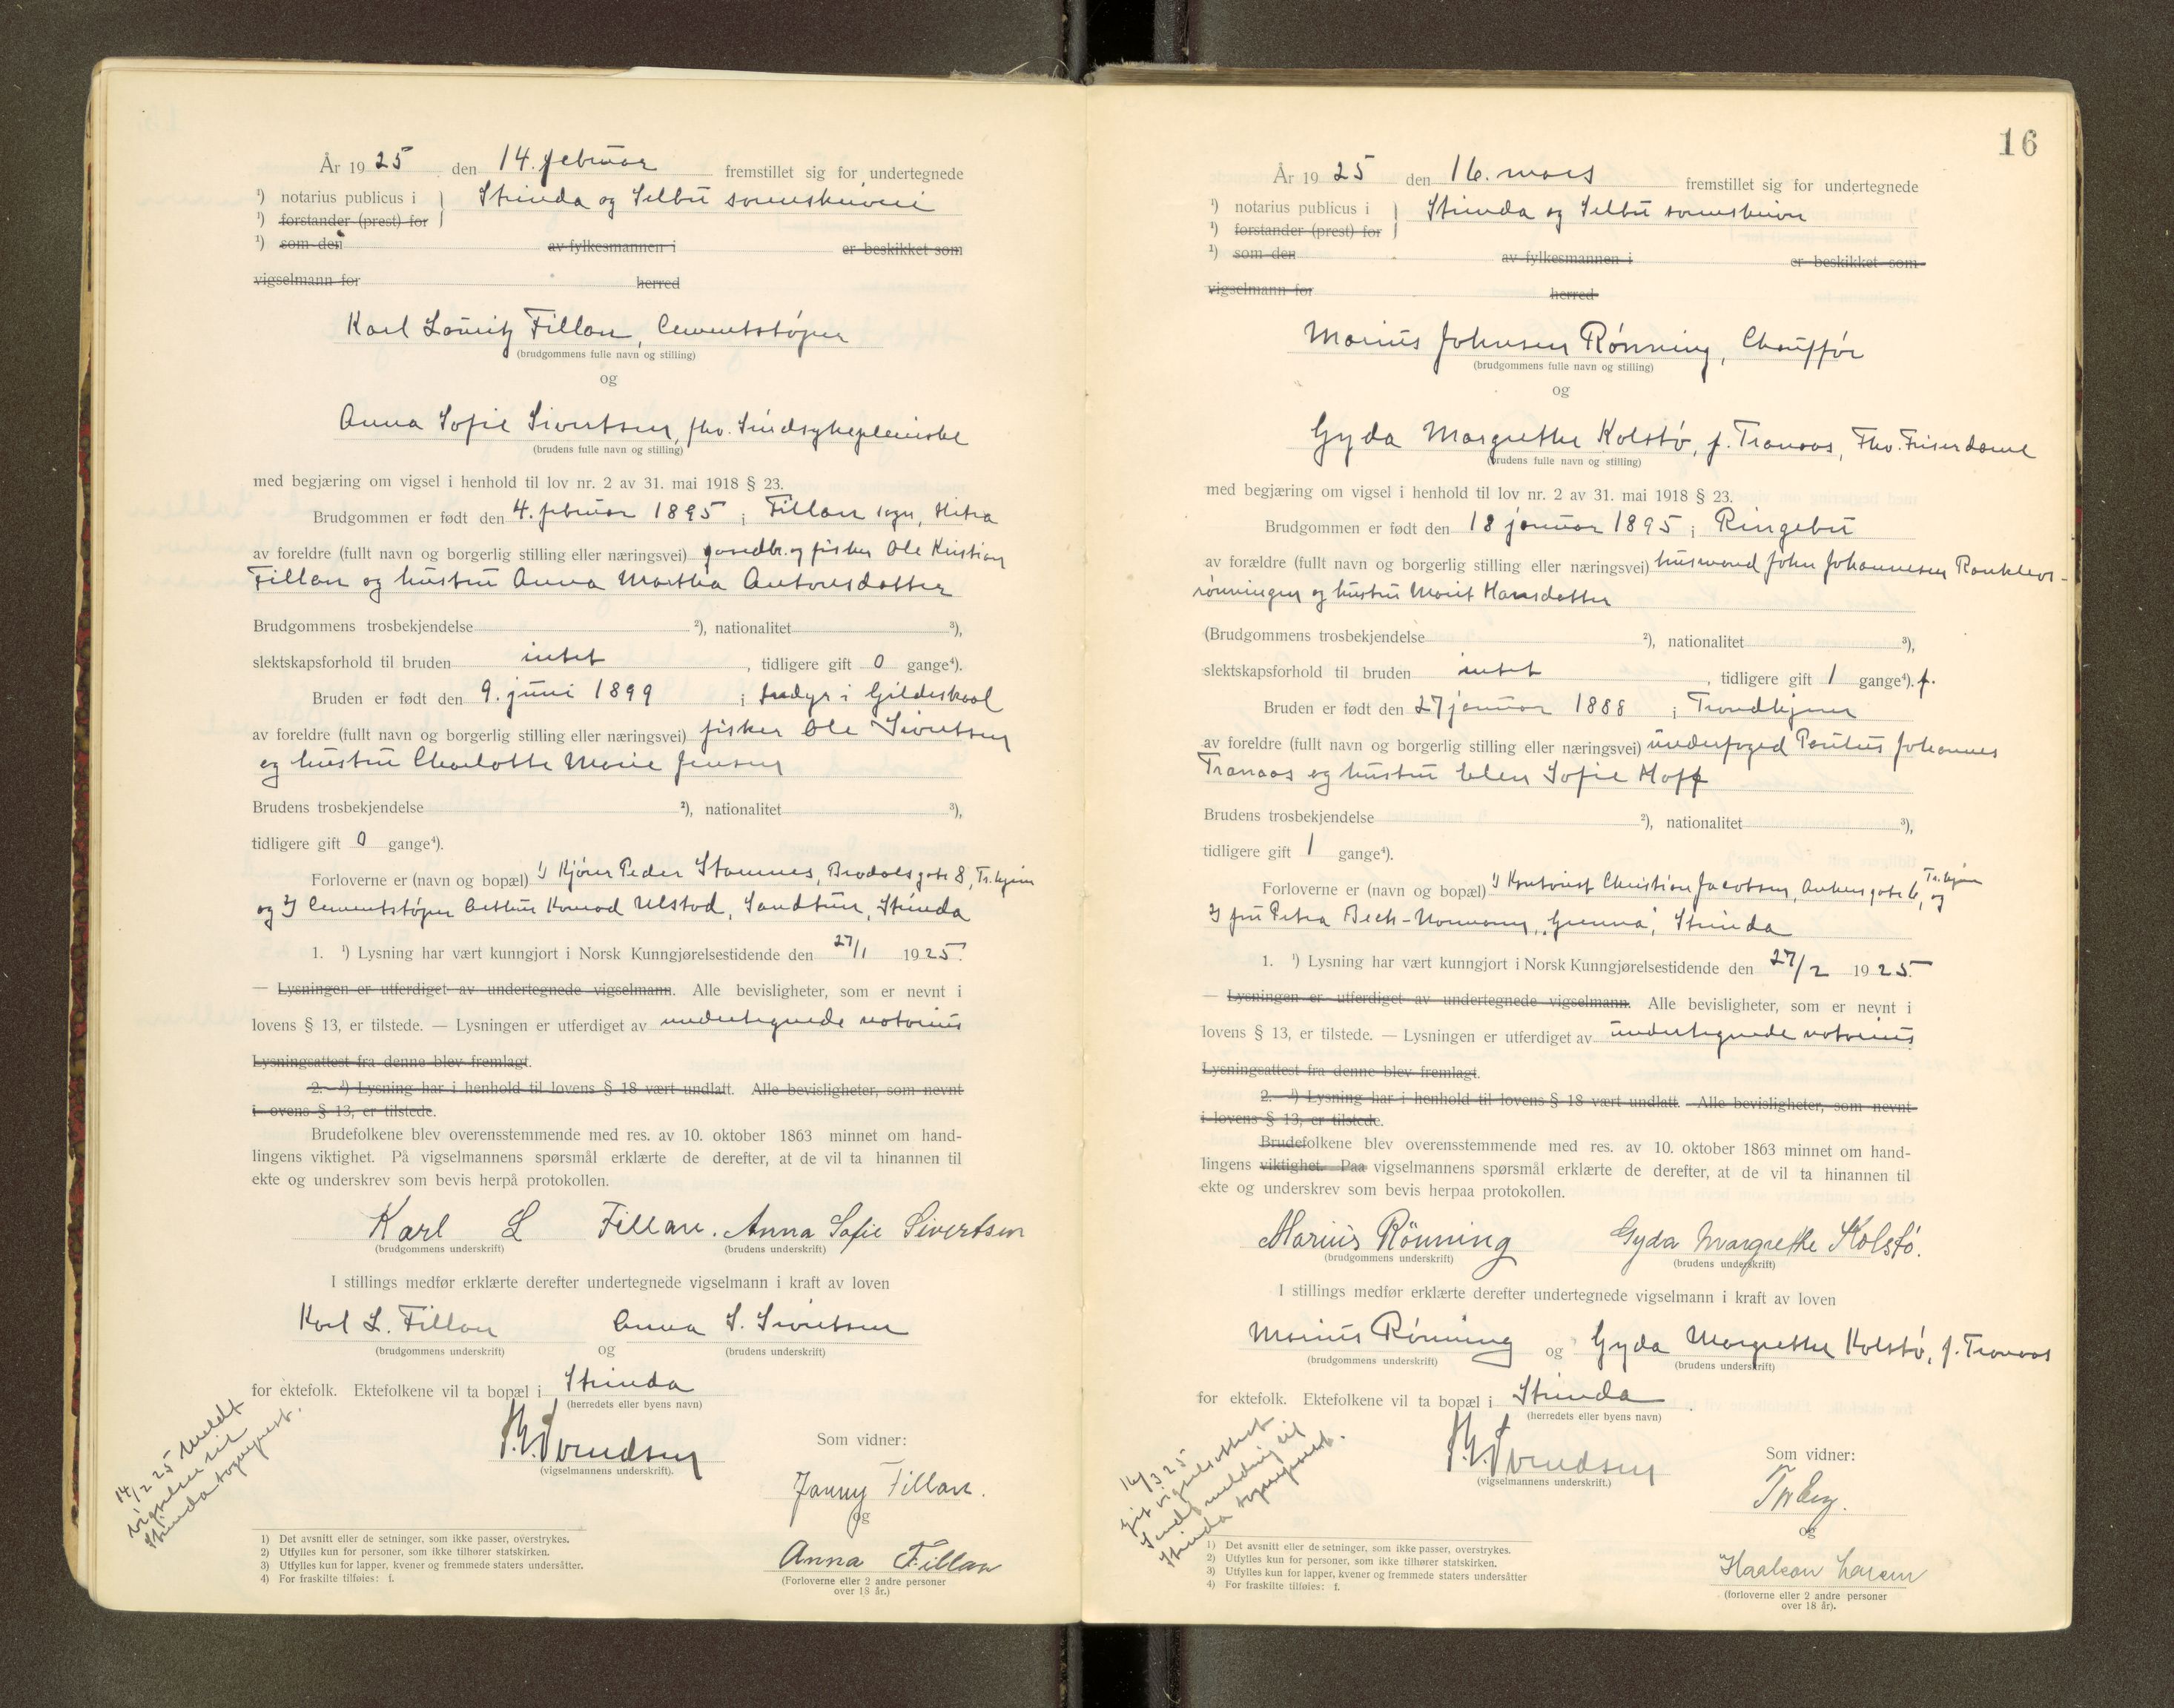 År 1925 den 14. februar fremstillet sig for undertegnede
¹) notarius publicus i } Strinda og Selbu sorenskriveri
¹) forstander (prest) for
¹) som den av fylkesmannen i er beskikket som
vigselmann for herred
Karl Lauritz Fillan, Cementstøper
(brudgommens fulle navn og stilling)
og
Anna Sofie Sivertsen, fhv. Sindsykepleierske
(brudens fulle navn og stilling)
med begjæring om vigsel i henhold til lov nr. 2 av 31. mai 1918 § 23.
Brudgommen er født den 4. februar 1895 i Fillan sogn, Hitra
av foreldre (fullt navn og borgerlig stilling eller næringsvei) gaardbr. og fisker Ole Kristian
Fillan og hustru Anna Martha Antonsdatter
Brudgommens trosbekjendelse ²), nationalitet ³),
slektskapsforhold til bruden intet, tidligere gift 0 gange⁴).
Bruden er født den 9. juni 1899 i Indyr i Gildeskaal
av foreldre (fullt navn og borgerlig stilling eller næringsvei) fisker Ole Sivertsen
og hustru Charlotte Marie Jensen
Brudens trosbekjendelse ²), nationalitet ³),
tidligere gift 0 gange⁴).
Forloverne er (navn og bopæl) 1) Kjører Peder Stamnes, gate 8, Tr.hjem
og 2) Cementstøper Arthur Konrad Ulstad, Sandtun, Strinda
1. ¹) Lysning har vært kunngjort i Norsk Kunngjørelsestidende den 27/1 1925.
— Lysningen er utferdiget av undertegnede vigselmann. Alle bevisligheter, som er nevnt i
lovens § 13, er tilstede. — Lysningen er utferdiget av undertegnede notarius
Lysningsattest fra denne blev fremlagt.
2. ¹) Lysning har i henhold til lovens § 18 vært undlatt. Alle bevisligheter, som nevnt
i ovens § 13, er tilstede.
Brudefolkene blev overensstemmende med res. av 10. oktober 1863 minnet om hand-
lingens viktighet. På vigselmannens spørsmål erklærte de derefter, at de vil ta hinannen til
ekte og underskrev som bevis herpå protokollen.
Karl L Fillan. Anna Sofie Sivertsen
(brudgommens underskrift) (brudens underskrift)
I stillings medfør erklærte derefter undertegnede vigselmann i kraft av loven
Karl L. Fillan Anna S. Sivertsen
(brudgommens underskrift) og (brudens underskrift)
for ektefolk. Ektefolkene vil ta bopæl i Strinda
(herredets eller byens navn)
Svendsen
(vigselmannens underskrift).
Som vidner:
Janny Fillan.
og
Anna Fillan
(Forloverne eller 2 andre personer
over 18 år.)
14/2 25 meldt
vigselen til
Strinda sogneprest.
1) Det avsnitt eller de setninger, som ikke passer, overstrykes.
2) Utfylles kun for personer, som ikke tilhører statskirken.
3) Utfylles kun for lapper, kvener og fremmede staters undersåtter.
4) For fraskilte tilføies: f.
16
År 1925 den 16. mars fremstillet sig for undertegnede
¹) notarius publicus i } Strinda og Selbu sorenskriv
¹) forstander (prest) for
¹) som den av fylkesmannen i er beskikket som
vigselmann for herred
Marius Johnsen Rønning, Chauffør
(brudgommens fulle navn og stilling)
og
Gyda Margrethe Kolstø, f. Tranaas, Fhv. Friserdame
(brudens fulle navn og stilling)
med begjæring om vigsel i henhold til lov nr. 2 av 31. mai 1918 § 23.
Brudgommen er født den 18 januar 1895 i Ringebu
av forældre (fullt navn og borgerlig stilling eller næringsvei) husmand John Johannesen Ranklevs-
rønningen og hustru Marit Hansdatter
(Brudgommens trosbekjendelse ²), nationalitet ³),
slektskapsforhold til bruden intet, tidligere gift 1 gange⁴). f.
Bruden er født den 27 januar 1888 i Trondhjem
av foreldre (fullt navn og borgerlig stilling eller næringsvei) underfoged Paulus Johannes
Tranaas og hustru Elen Sofie Hoff
Brudens trosbekjendelse ²), nationalitet ³),
tidligere gift 1 gange⁴).
Forloverne er (navn og bopæl) 1) Kontorist Christian Jacobsen, Ankersgate 6, Tr.hjem og
2) fru Petra Bech-Normann, "Grenna", Strinda
1. ¹) Lysning har vært kunngjort i Norsk Kunngjørelsestidende den 27/2 1925.
— Lysningen er utferdiget av undertegnede vigselmann. Alle bevisligheter, som er nevnt i
lovens § 13, er tilstede. — Lysningen er utferdiget av undertegnede notarius
Lysningsattest fra denne blev fremlagt.
2. ¹) Lysning har i henhold til lovens § 18 vært undlatt. Alle bevisligheter, som nevnt
i lovens § 13, er tilstede.
Brudefolkene blev overensstemmende med res. av 10. oktober 1863 minnet om hand-
lingens viktighet. Paa vigselmannens spørsmål erklærte de derefter, at de vil ta hinannen til
ekte og underskrev som bevis herpaa protokollen.
Marius Rönning Gyda Margrethe Kolstø.
(brudgommens underskrift) (brudens underskrift)
I stillings medfør erklærte derefter undertegnede vigselmann i kraft av loven
Marius Rønning og Gyda Margrethe Kolstø, f. Tranaas
(brudgommens underskrift) (brudens underskrift)
for ektefolk. Ektefolkene vil ta bopæl i Strinda
(herredets eller byens navn)
Svendsen
(vigselmannens underskrift.)
Som vidner:
og
Haakon Larsen
(forloverne eller 2 andre personer
over 18 år).
16/3 25
git vigselsattest
Sendt melding til
Strinda sogneprest.
1) Det avsnitt eller de setninger, som ikke passer, overstrykes.
2) Utfylles kun for personer, som ikke tilhører statskirken.
3) Utfylles kun for lapper, kvener og fremmede staters undersåtter
4) For fraskilte tilføies: f.